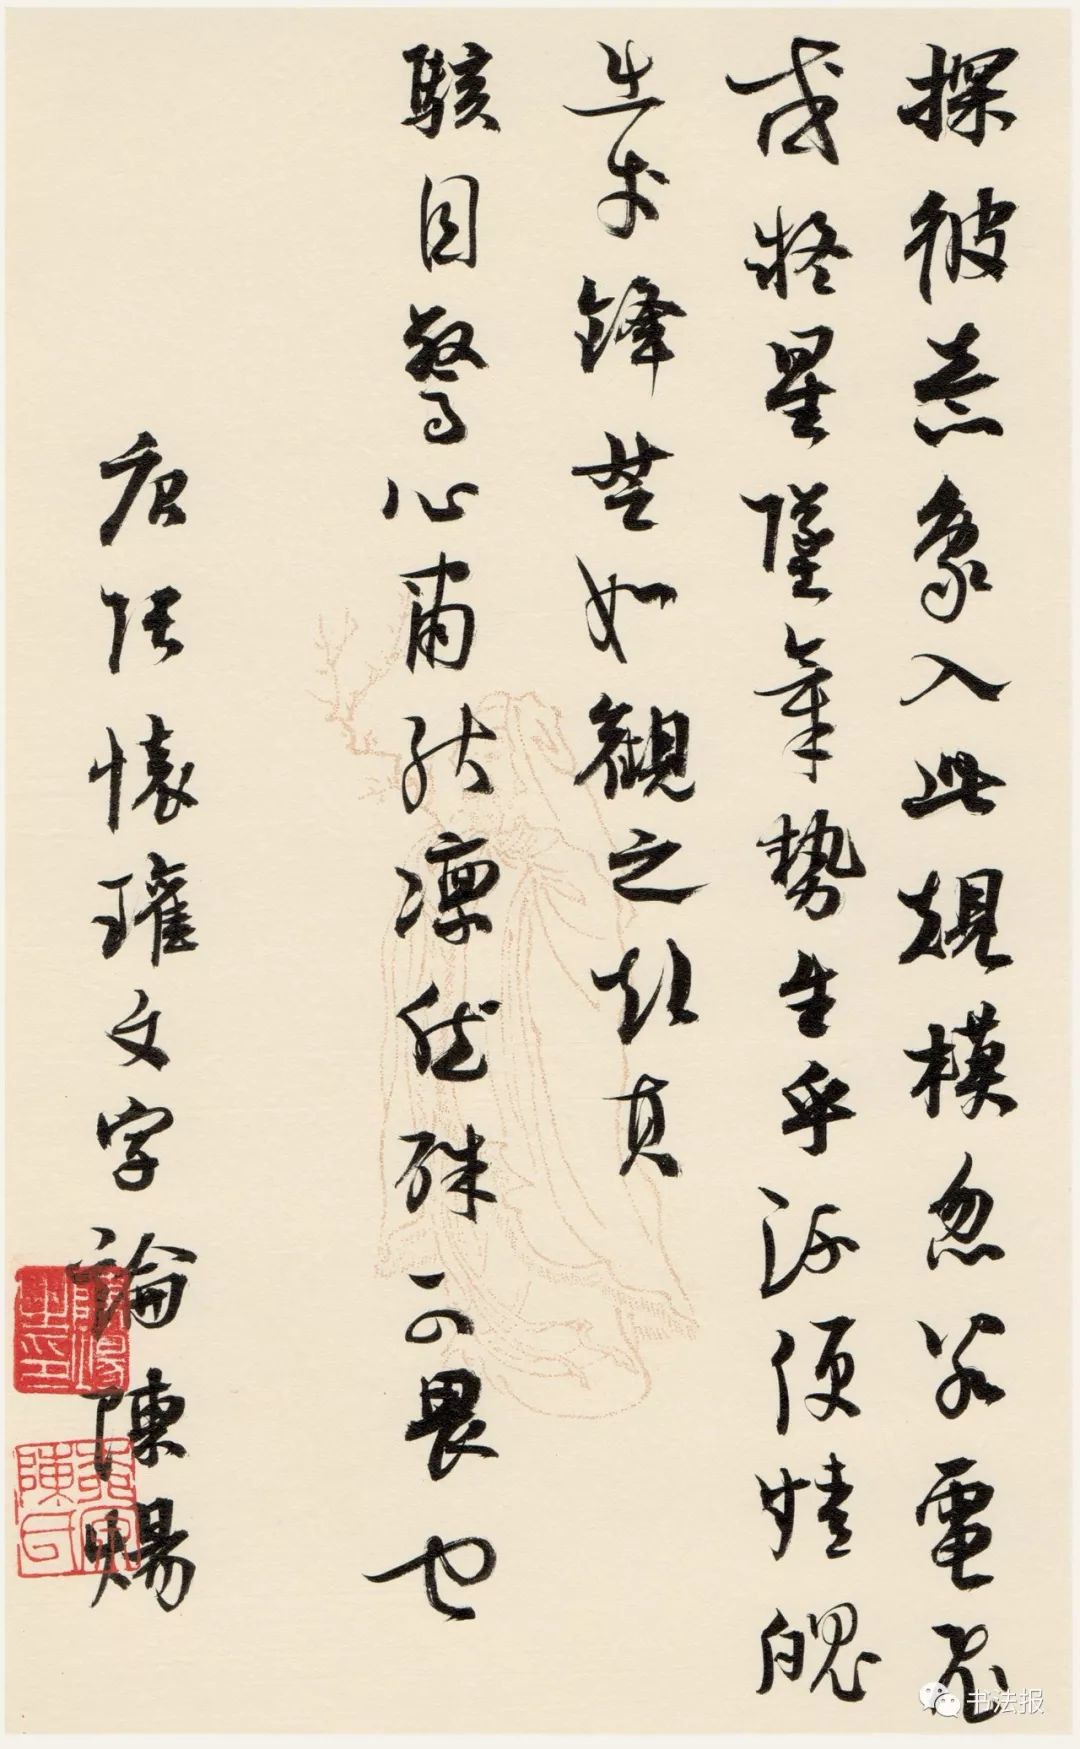 探彼意象入此規模忽若電飛
或疑星墜氣勢生乎流便精魄
出於鋒芒如觀之欲其
駭目驚心肅然凛然殊可畏也
唐張懷瓘文字論陳煬
书法报